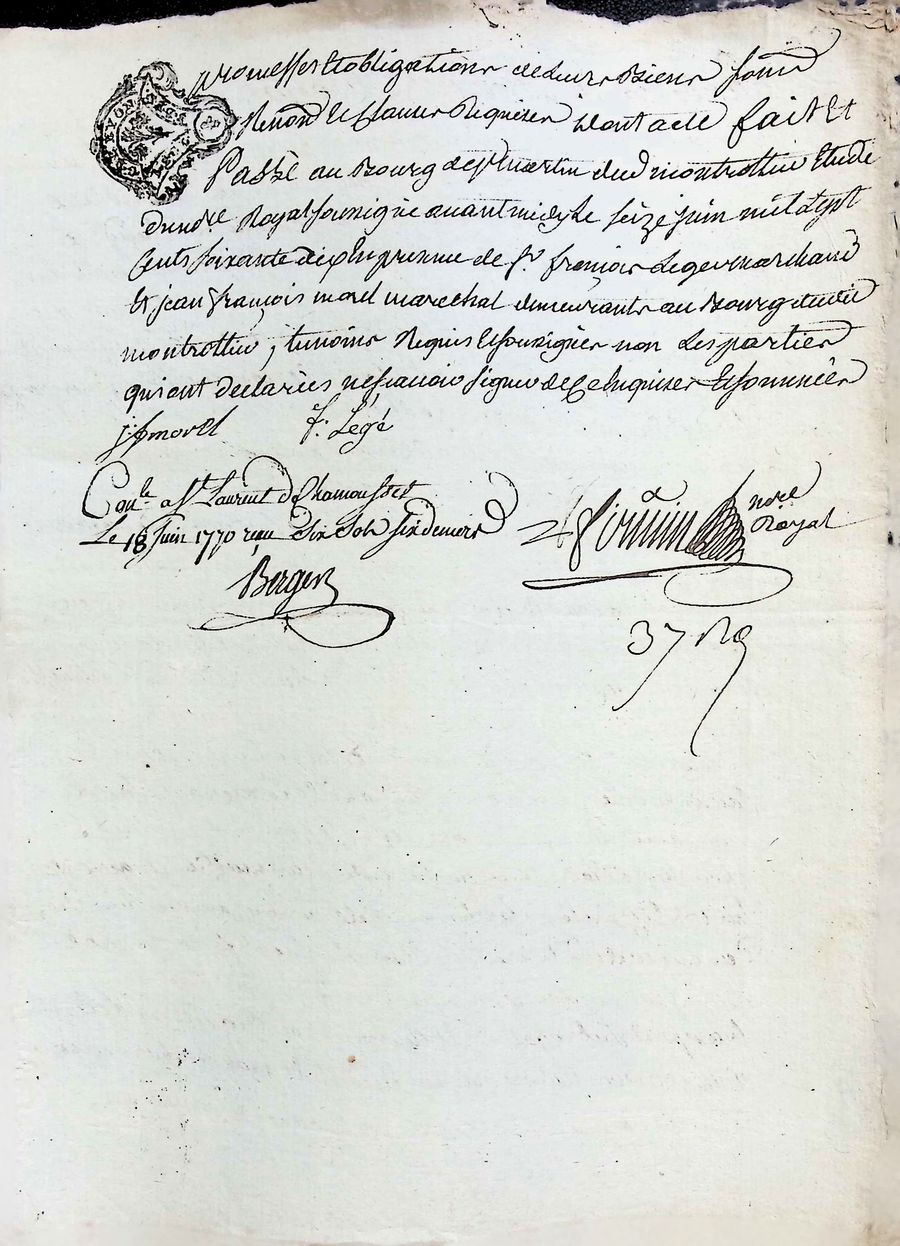 promesses et obligations de leurs Biens soums
Renond et Clauses Requises dont acte fait et
Passé au Bourg de st martin dud montrottier Etude
du nore Royal soussigné avant midy le seize juin mil sept
Cents soixante dix En presence de sr françois Leger marchand
Et jean françois morel marechal demeurants au Bourg dudit
montrottier, temoins Requis Et soussignés non Les parties
qui ont declarées ne scavoir signer de ce Enquises Et sommées
j f morel f. Légé
Conle a st Laurent de Chamousset
Le 18 Juin 1770 reçu Six Sols six deniers
nore
Royal
Berger
37